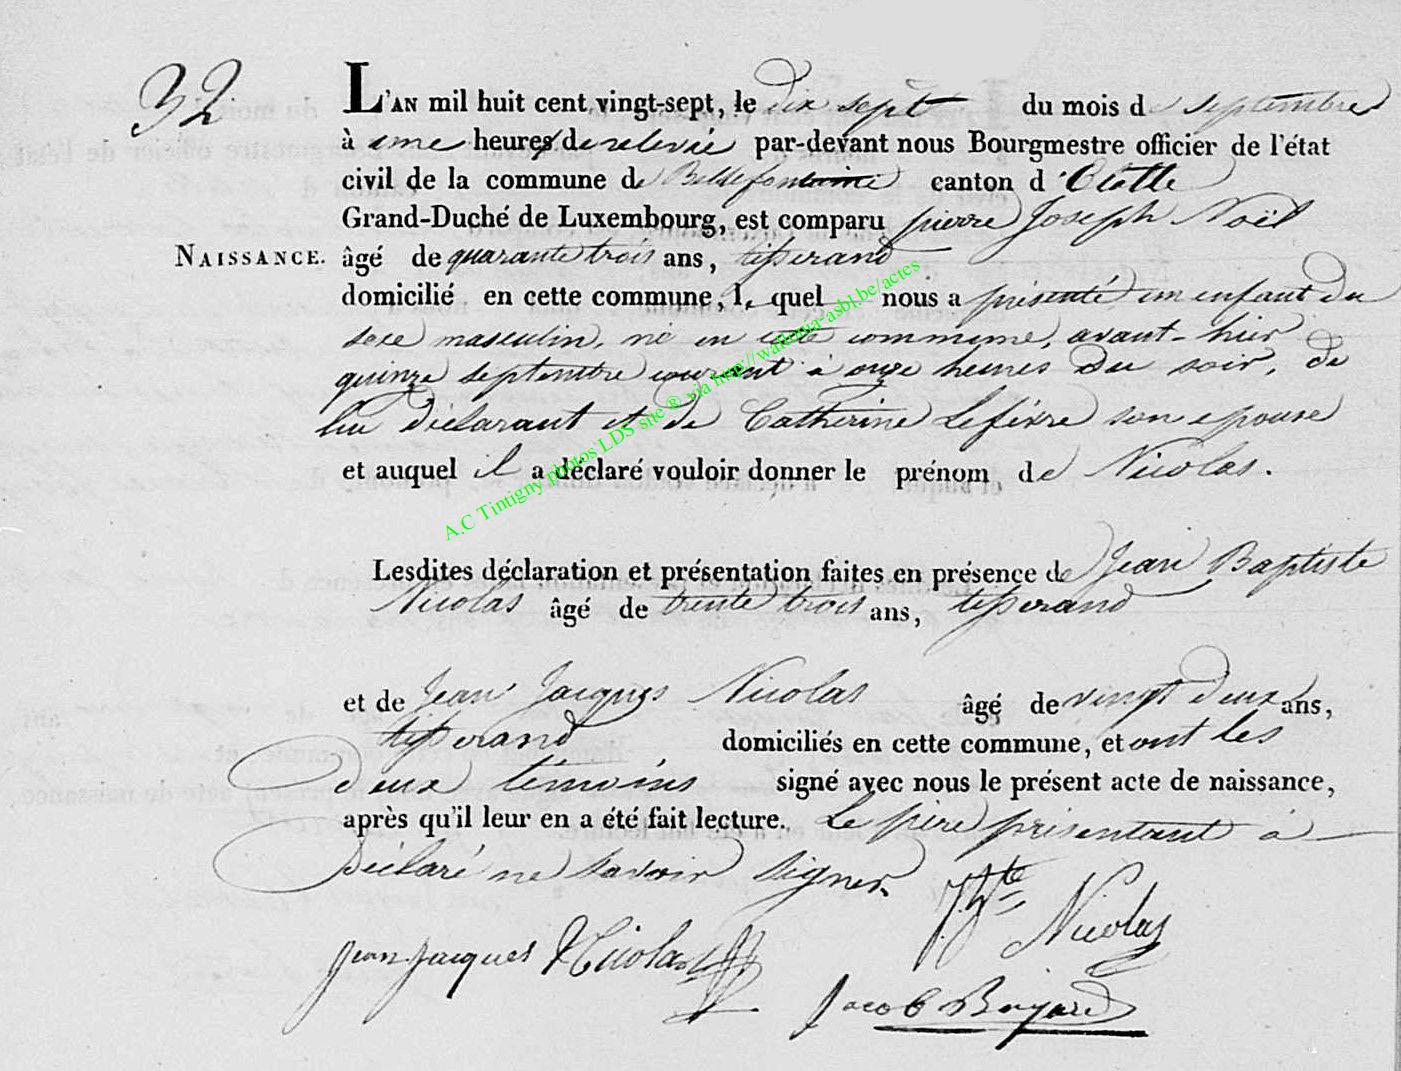 32
L'AN mil huit cent vingt-sept, le dix sept du mois de septembre
à une heures de relevée par-devant nous Bourgmestre officier de l'état
civil de la commune de Bellefontaine canton d'Etalle
Grand-Duché de Luxembourg, est comparu pierre Joseph Noël
NAISSANCE. âgé de quarante trois ans, tisserand
domicilié en cette commune, le quel nous a présenté un enfant du
sexe masculin, né en cette commune, avant-hier
quinze septembre courant à onze heures du soir, de
lui déclarant et de Catherine Lefèvre son epouse
et auquel il a déclaré vouloir donner le prénom de Nicolas.
Lesdites déclaration et présentation faites en présence de Jean Baptiste
Nicolas âgé de trente trois ans, tisserand
et de Jean Jacques Nicolas âgé de vingt deux ans,
tisserand domiciliés en cette commune, et ont les
deux témoins signé avec nous le présent acte de naissance,
après qu'il leur en a été fait lecture. Le père présentant a
déclaré ne savoir signer.
J. Bte Nicolas
jean jacques Nicolas
Jacob
A.C Tintigny photos LDS site ® via http://wallonia-asbl.be/actes